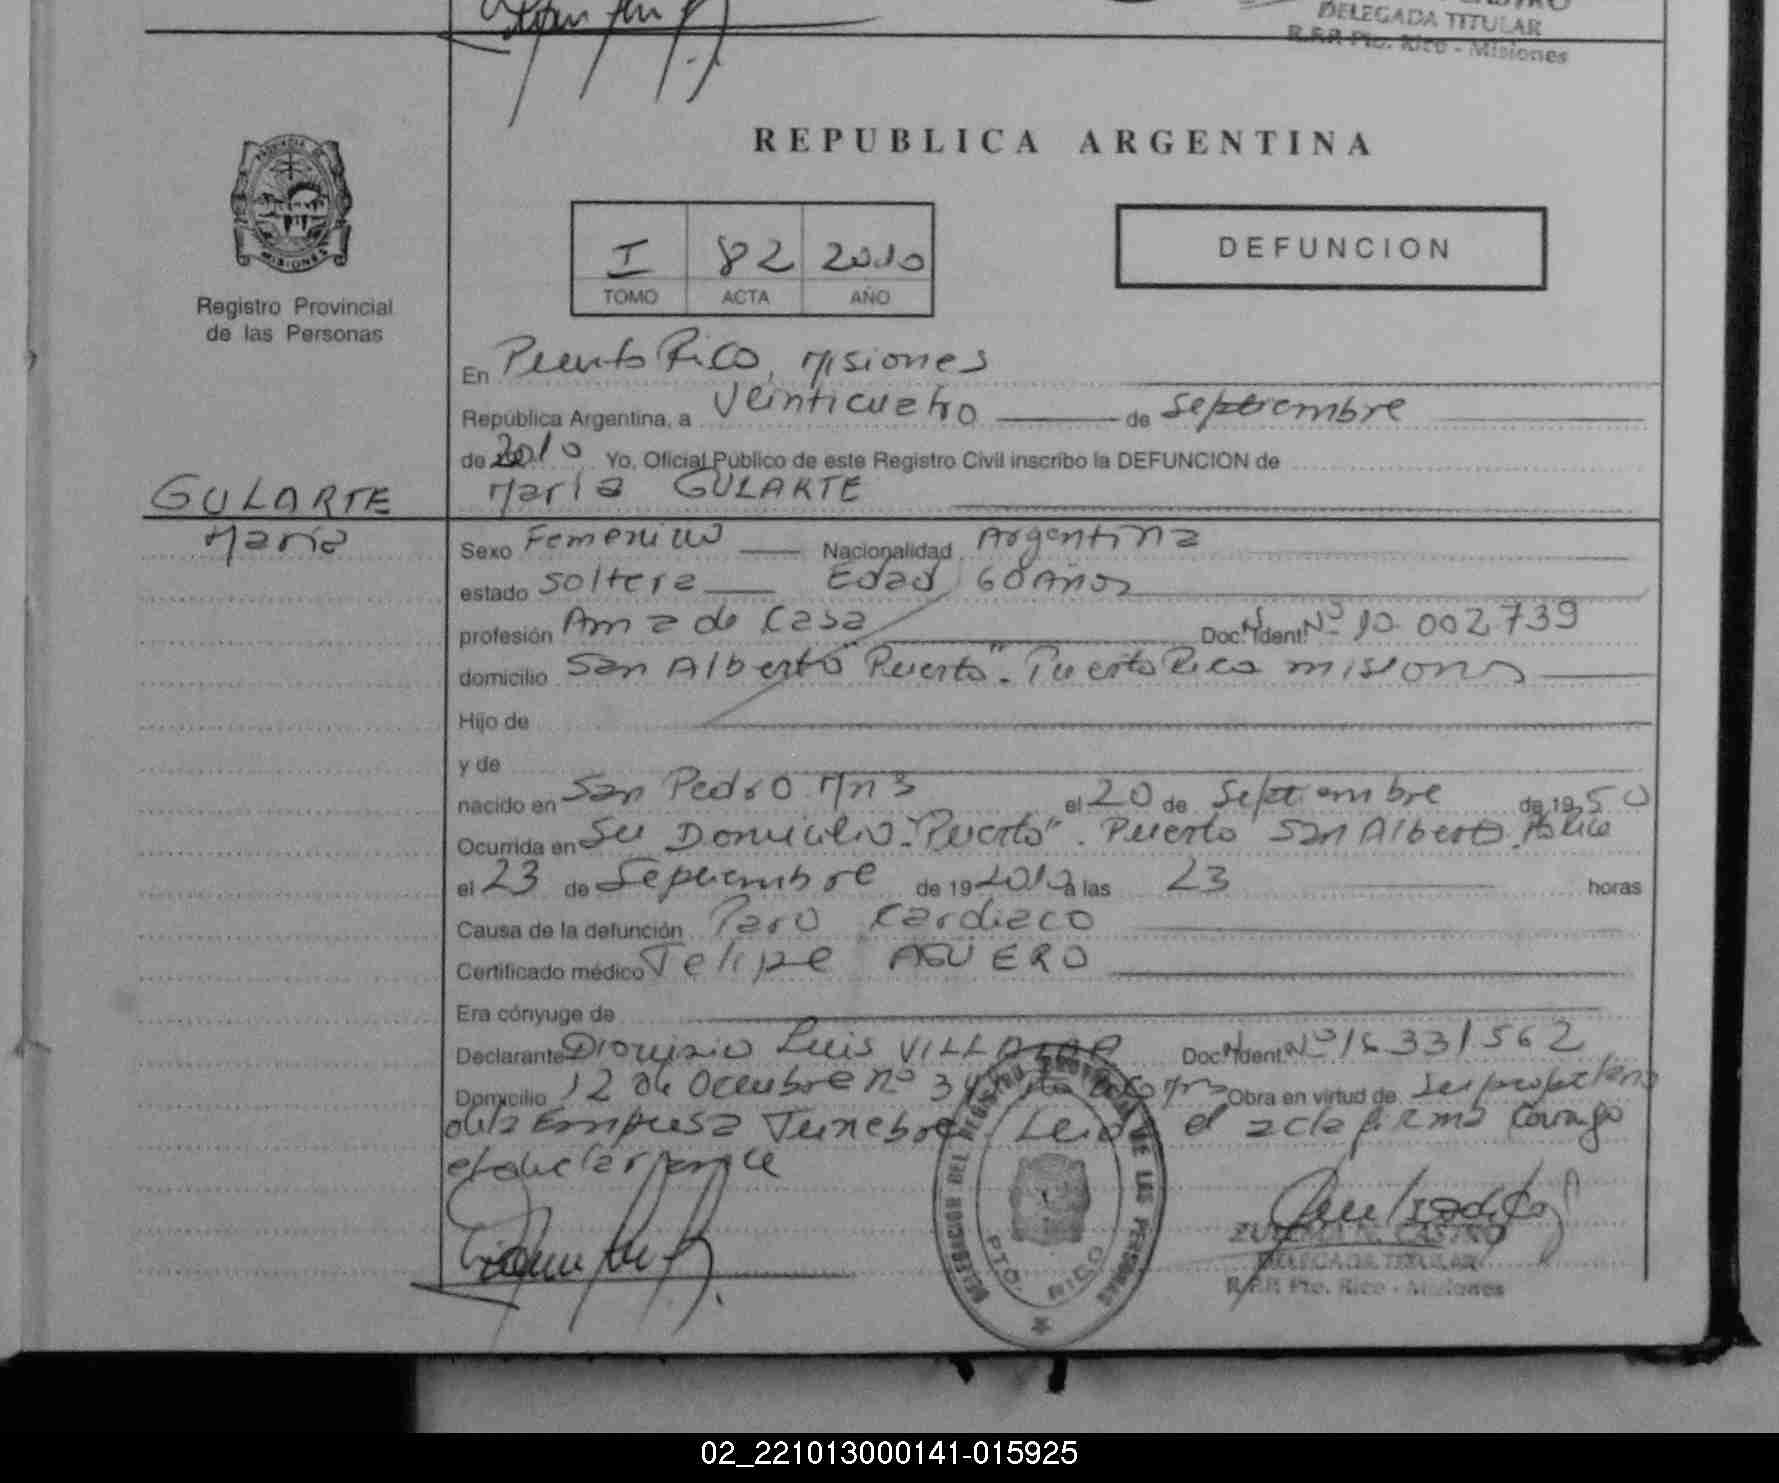 DELEGADA TITULAR
R.P.P. Pto. Rico - Misiones
REPUBLICA ARGENTINA
PROVINCIA DE MISIONES
Registro Provincial
de las Personas
I 82 2010
TOMO ACTA AÑO
DEFUNCION
En Puerto Rico, Misiones
República Argentina, a Veinticuatro de Septiembre
de 2010 Yo, Oficial Público de este Registro Civil inscribo la DEFUNCION de
María GULARTE
GULARTE
María
Sexo Femenino Nacionalidad Argentina
estado Soltera Edad 60 Años
profesión Ama de Casa Doc. Ident. Nº 10.002739
domicilio San Alberto "Puerto". Puerto Rico Misiones
Hijo de
y de
nacido en San Pedro Mns el 20 de Septiembre de 1950
Ocurrida en Su Domicilio. "Puerto". Puerto San Alberto. P. Rico
el 23 de Septiembre de 19 2010 a las 23 horas
Causa de la defunción Paro Cardiaco
Certificado médico Felipe AGUERO
Era cónyuge de
Declarante Dionisio Luis VILLALBA Doc. Ident. Nº 16331562
Domicilio 12 de Octubre nº 34 Obra en virtud de Ser propietario
de la Empresa Funebre. Leida el acta firma conmigo
el declarante
DELEGACION DEL REGISTRO PROVINCIAL DE LAS PERSONAS
PTO. RICO
ZULEMA N. CASTRO
DELEGADA TITULAR
R.P.P. Pto. Rico - Misiones
02_221013000141-015925